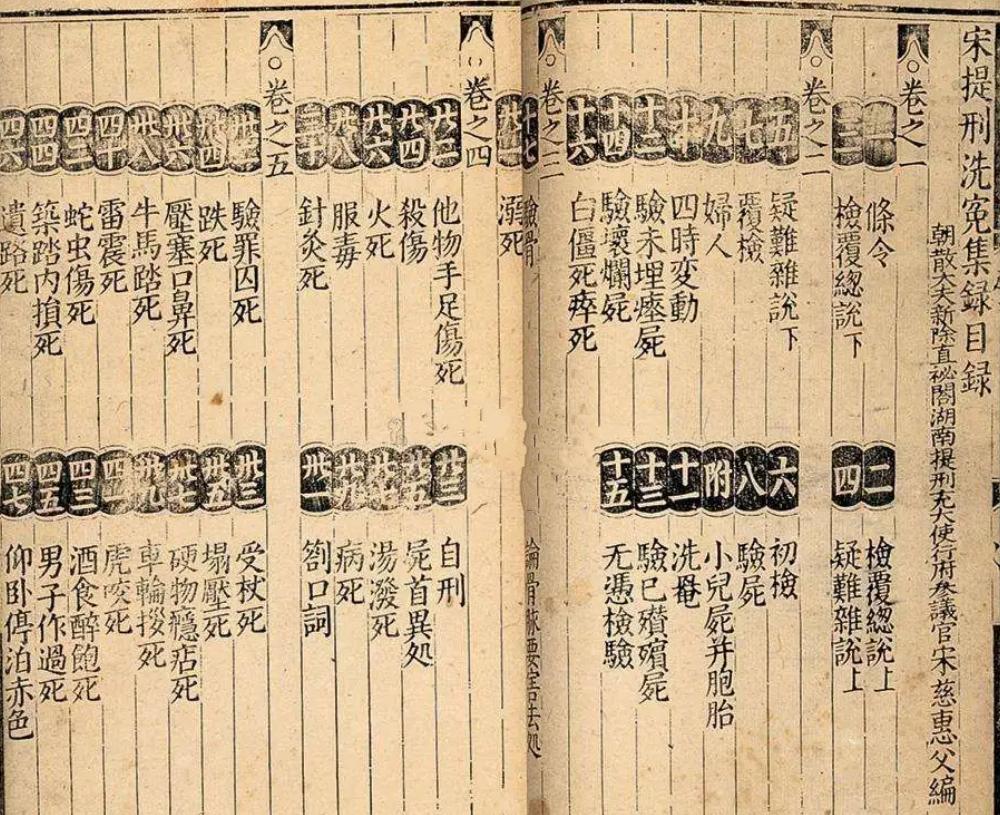 宋提刑洗冤集録目録
朝散大夫新除直祕閣湖南提刑充大使行府叅議官宋慈惠父編
卷之一
條令 二 檢覆緫說上
三 檢覆緫說下 四 疑難雜說上
卷之二
五 疑難雜說下 六 初檢
七 覆檢 八 驗屍
九 婦人 附 小兒屍并胞胎
十 四時変動 十一 洗罨
十二 驗未埋瘞屍 十三 驗已殯屍
十四 驗壞爛屍 十五 无憑檢驗
十六 白僵死瘁死
卷之三
十七 驗骨 論骨脉要害去処
溺死
卷之四
廿二 他物手足傷死 廿三 自刑
廿四 殺傷 廿五 屍首異処
廿六 火死 廿七 湯潑死
廿八 服毒 廿九 病死
三十 針灸死 卅一 劄口詞
卷之五
卅二 驗罪囚死 卅三 受杖死
卅四 跌死 卅五 塌壓死
卅六 壓塞口鼻死 卅七 硬物癮痁死
卅八 牛馬踏死 卅九 車輪拶死
四十 雷震死 四一 虎咬死
四二 蛇虫傷死 四三 酒食醉飽死
四四 築踏内損死 四五 男子作過死
四六 遺路死 四七 仰卧停泊赤色